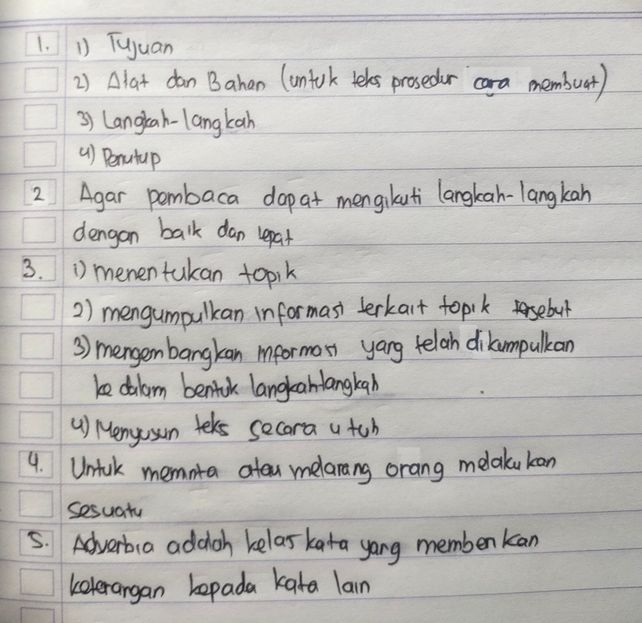 1. 1) Tujuan
2) Alat dan Bahan (untuk teks prosedur cara membuat)
3) Langkah-langkah
4) Penutup
2 Agar pembaca dapat mengikuti langkah-langkah
dengan baik dan tepat
3. 1) menentukan topik
2) mengumpulkan informasi terkait topik tersebut
3) mengembangkan informasi yang telah dikumpulkan
ke dalam bentuk langkah-langkah
4) Menyusun teks secara utuh
4. Untuk meminta atau melarang orang melakukan
sesuatu
5. Adverbia adalah kelas kata yang memberikan
keterangan kepada kata lain